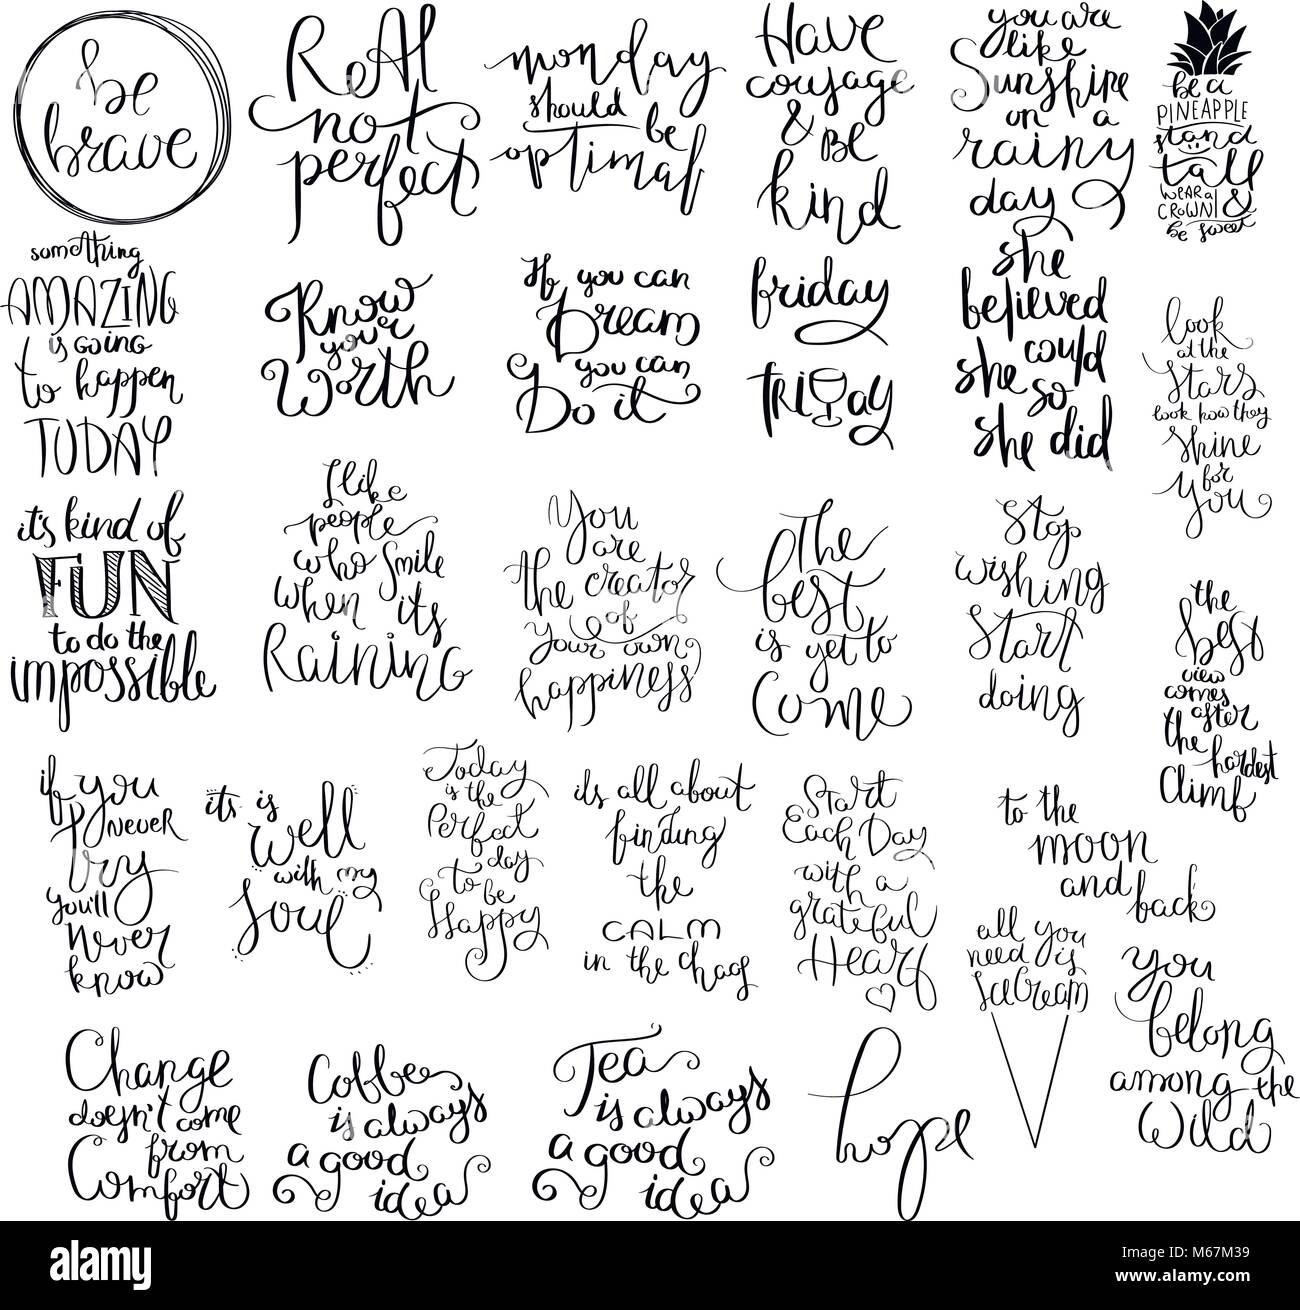 be
brave
ReAl
not
perfect
monday
should
be
optimal
Have
courage
& Be
kind
you are
like
Sunshine
on a
rainy
day
be a
PINEAPPLE
stand
tall
WEAR a
CROWN &
be sweet
something
AMAZING
is GOING
to happen
TODAY
Know
your
Worth
If you can
Dream
you can
Do it
friday
TRIDAY
she
believed
she could
so
she did
look
at the
stars
look how they
shine
for
you
it's kind of
FUN
to do the
impossible
I like
people
who smile
when its
Raining
You
are
the creator
of
your own
happiness
The
best
is yet to
Come
Stop
wishing
Start
doing
the
best
view
comes
after
the hardest
Climb
if you
Never
try
you'll
Never
know
its is
Well
with my
Soul
Today
is the
Perfect
day
to be
Happy
its all about
finding
the
CALM
in the chaos
Start
Each Day
with a
grateful
Heart
to the
moon
and
back
all you
need is
IceCream
you
belong
among the
Wild
Change
doesn't come
from
Comfort
Coffee
is always
a good
idea
Tea
is always
a good
idea
hope
alamy
Image ID: M67M39
www.alamy.com